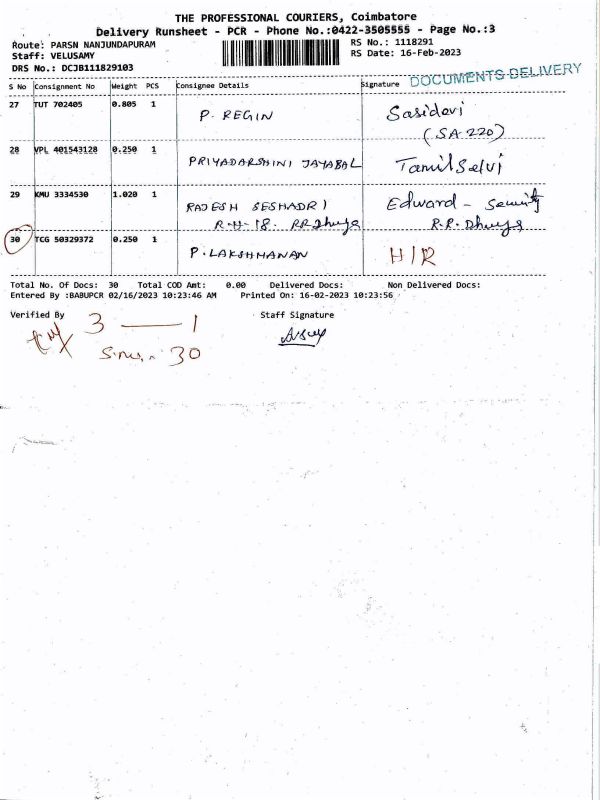 THE PROFESSIONAL COURIERS, Coimbatore
Delivery Runsheet - PCR - Phone No.:0422-3505555 - Page No.:3
Route: PARSN NANJUNDAPURAM
RS No.: 1118291
Staff: VELUSAMY
RS Date: 16-Feb-2023
DRS No.: DCJB111829103
DOCUMENTS DELIVERY
S No Consignment No Weight PCS Consignee Details Signature
27 TUT 702405 0.805 1 P. REGIN Sasidevi
(SA 220)
28 VPL 401543128 0.250 1 PRIYADARSHINI JAYABAL Tamil Selvi
29 KMU 3334530 1.020 1 RAJESH SESHADRI Edward - Security
R-H-18. RR Dhuya R.R. Dhuya
30 TCG 50329372 0.250 1 P. LAKSHMANAN H/R
Total No. Of Docs: 30 Total COD Amt: 0.00 Delivered Docs: Non Delivered Docs:
Entered By :BABUPCR 02/16/2023 10:23:46 AM Printed On: 16-02-2023 10:23:56
Verified By Staff Signature
3 — 1
30